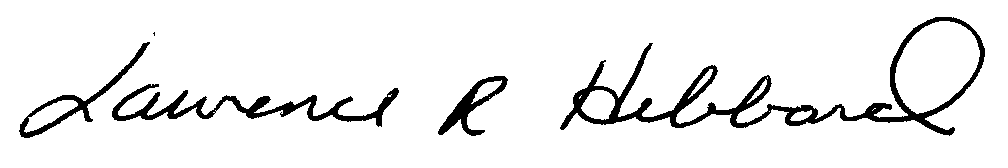 Lawrence R Hebbard